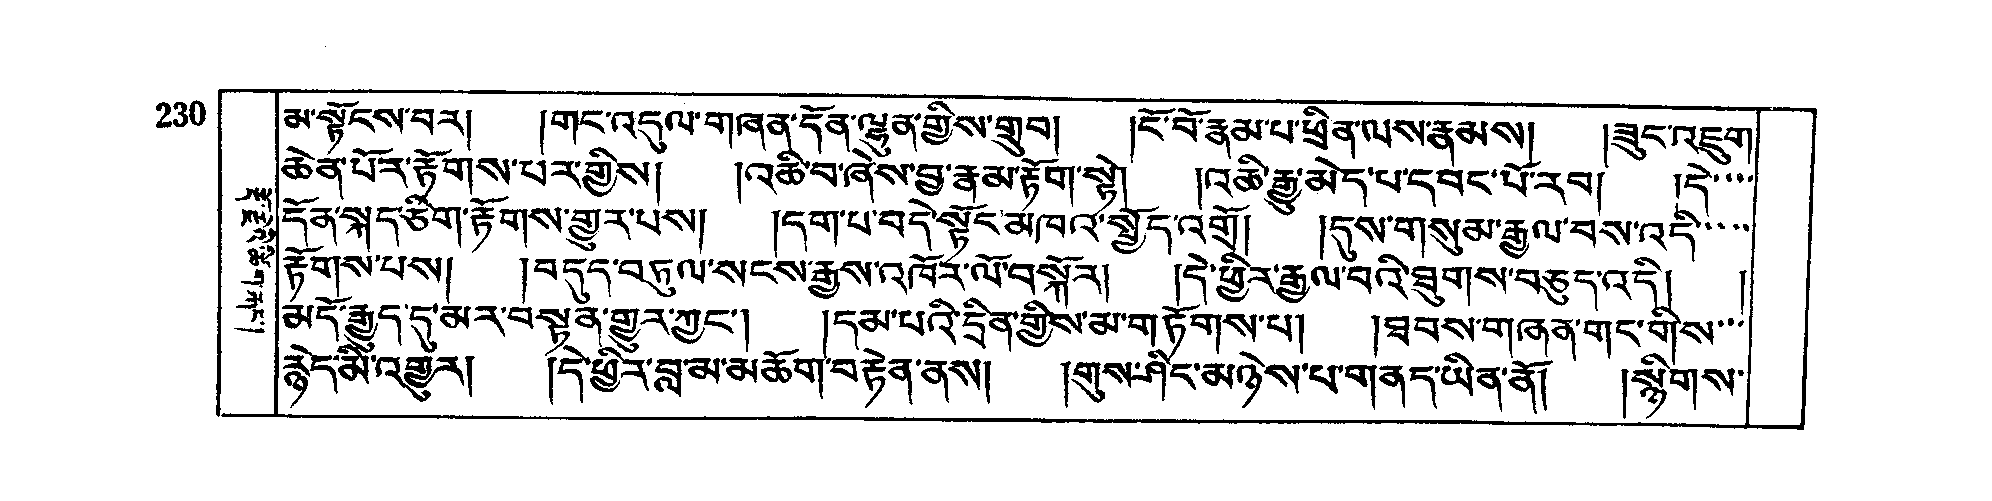 230
མ་སྟོངས་བར། །གང་འདུལ་གཞན་དོན་ལྷུན་གྱིས་གྲུབ། །ངོ་བོ་རྣམ་པ་ཕྲིན་ལས་རྣམས། །ཟུང་འཇུག
ཆེན་པོར་རྟོགས་པར་གྱིས། །འཆི་བ་ཞེས་བྱ་རྣམ་རྟོག་སྟེ། །འཆི་རྒྱུ་མེད་པ་དབང་པོ་རབ། །དེ་་་་་
དོན་སྐད་ཅིག་རྟོགས་གྱུར་པས། །དག་པ་བདེ་སྟོང་མཁའ་སྤྱོད་འགྲོ། །དུས་གསུམ་རྒྱལ་བས་འདི་་་་་
རྟོགས་པས། །བདུད་བཏུལ་སངས་རྒྱས་འཁོར་ལོ་བསྐོར། །དེ་ཕྱིར་རྒྱལ་བའི་ཐུགས་བཅུད་འདི། །
མདོ་རྒྱུད་དུ་མར་བསྟན་གྱུར་ཀྱང་། །དམ་པའི་དྲིན་གྱིས་མ་གཏོགས་པ། །ཐབས་གཞན་གང་གིས་་་
རྙེད་མི་འགྱུར། །དེ་ཕྱིར་བླ་མ་མཆོག་བརྟེན་ནས། །གུས་ཤིང་མཉེས་པ་གནད་ཡིན་ནོ། །སྙིགས་